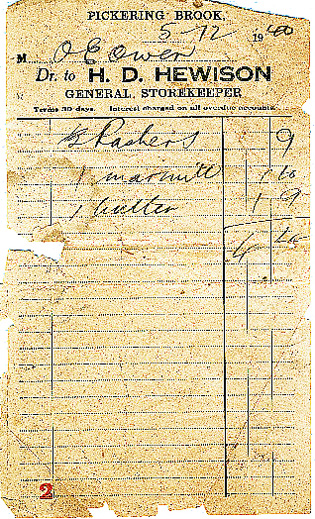 PICKERING BROOK,
5-12 1940
M O E Owen
Dr. to H. D. HEWISON
GENERAL STOREKEEPER
Terms 30 days. Interest charged on all overdue accounts.
Rashers 9
1 marmite 1 10
1 butter 1 9
4
2